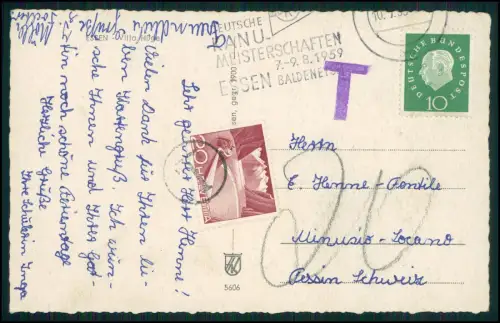 Freundliche Grüße
ESSEN
DEUTSCHE
KANU-
MEISTERSCHAFTEN
7.-9.8.1959
ESSEN BALDENEYSEE
T
DEUTSCHE BUNDESPOST
10
Sehr geehrter Herr Henne!
Vielen Dank für Ihren lie-
ben Kartengruß. Ich wün-
sche Ihnen und Ihrer Gat-
tin noch schöne Ferientage
Herzliche Grüße
Ihre Schülerin Inga
20
HELVETIA
Herrn
E. Henne-Pontile
Minusio-Locarno
Tessin Schweiz
20
5606